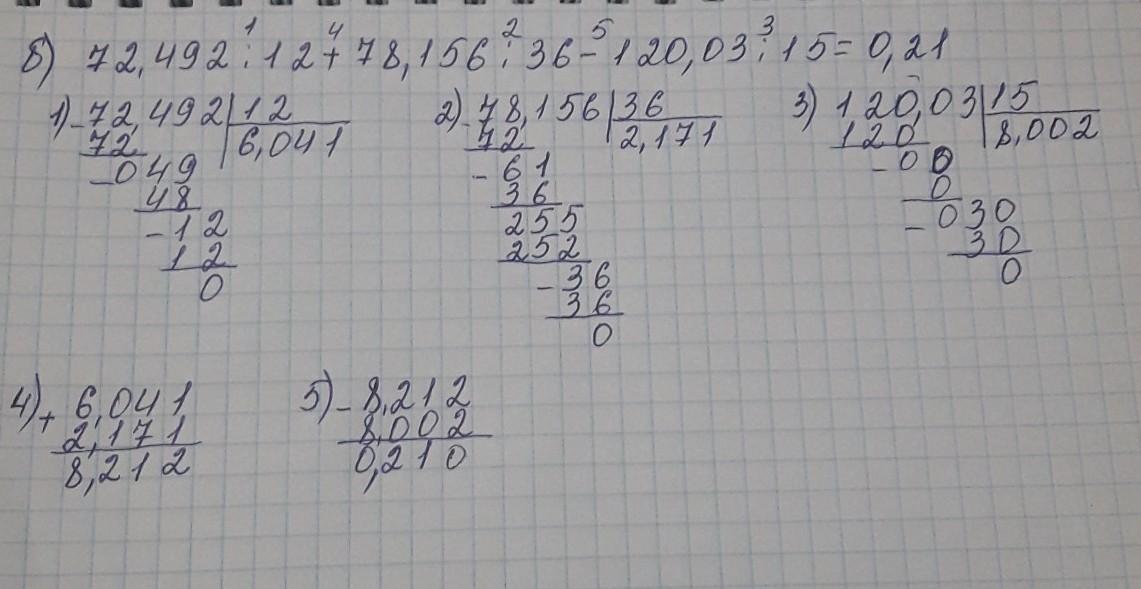 б) 72,492 : 12 + 78,156 : 36 - 120,03 : 15 = 0,21
1 4 2 5 3
1) - 72,492 | 12
72 | 6,041
- 049
48
- 12
12
0
2) - 78,156 | 36
72 | 2,171
- 61
36
255
252
- 36
36
0
3) 120,03 | 15
120 | 8,002
- 00
0
- 030
30
0
4) + 6,041
2,171
8,212
5) - 8,212
8,002
0,210